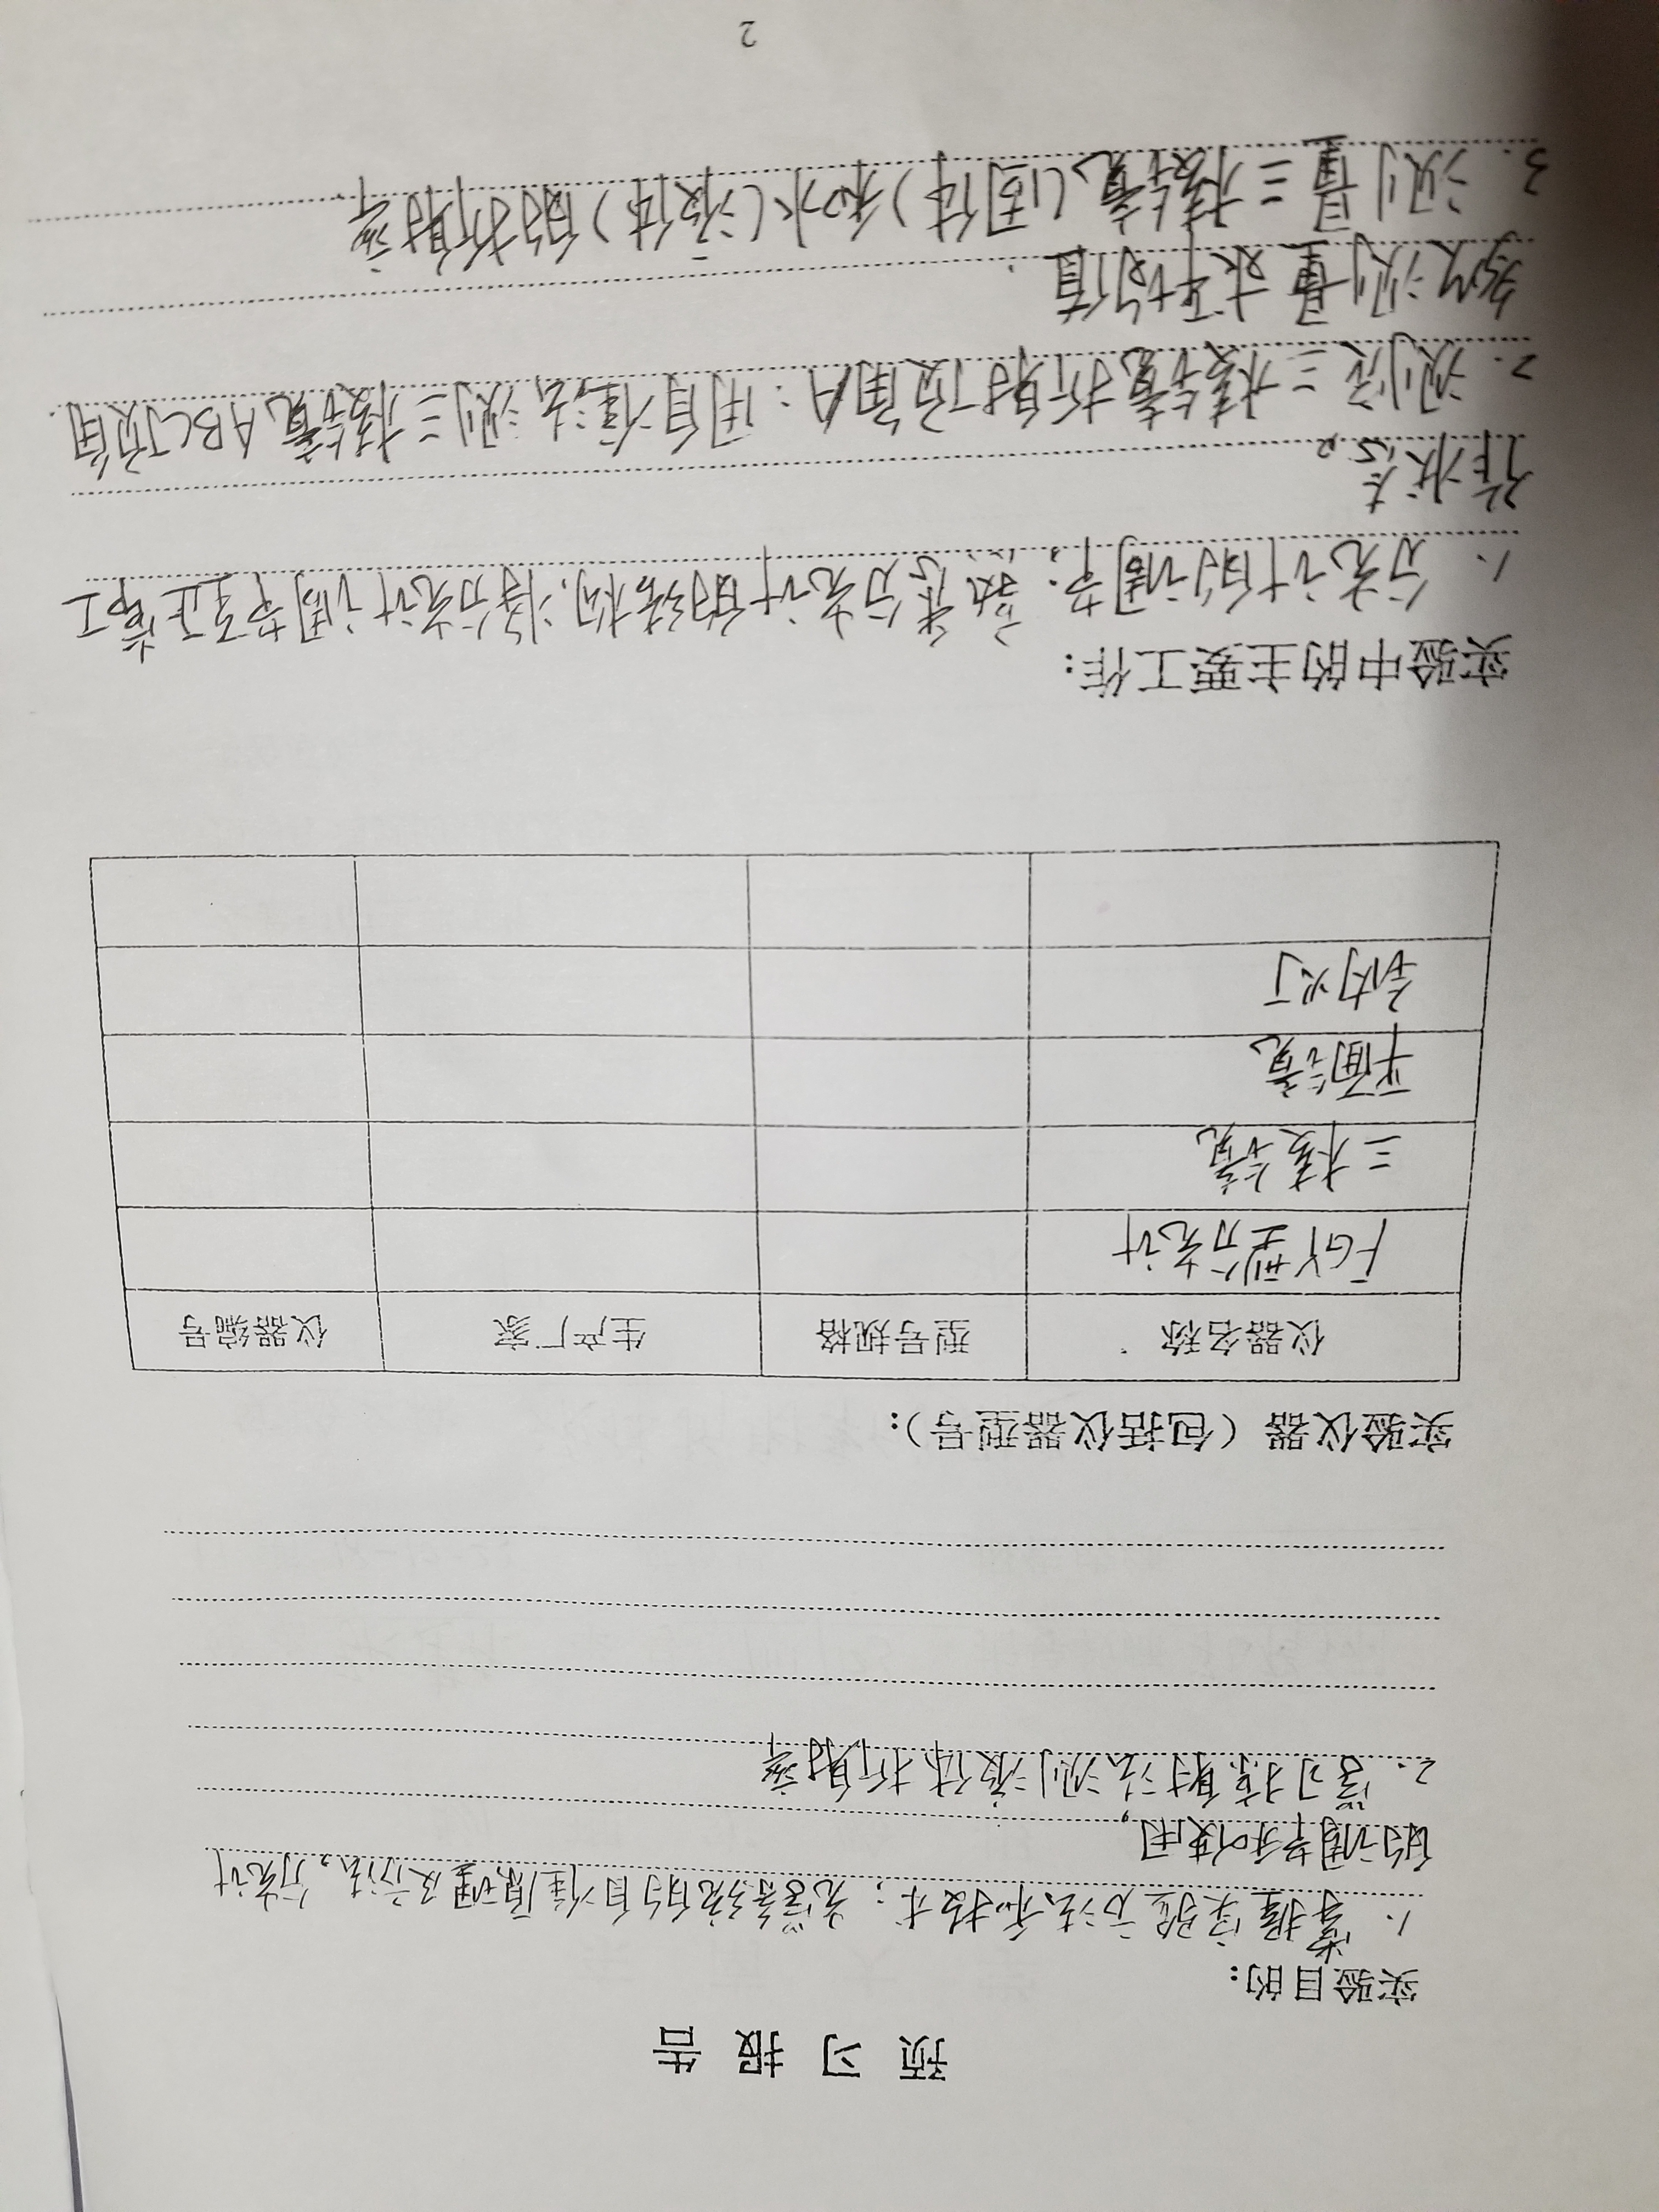 预习报告
实验目的:
1、掌握实验方法和技术;光学系统的自准原理及方法,分光计
的调节和使用,
2、学习掠射法测液体折射率
实验仪器(包括仪器型号):
仪器名称 型号规格 生产厂家 仪器编号
FGY型分光计
三棱镜
平面镜
钠灯
实验中的主要工作:
1、分光计的调节:熟悉分光计的结构,将分光计调节至正常工
作状态。
2.测定三棱镜折射顶角A:用自准法测三棱镜ABC顶角
多次测量求平均值.
3.测量三棱镜(固体)和水(液体)的折射率
2